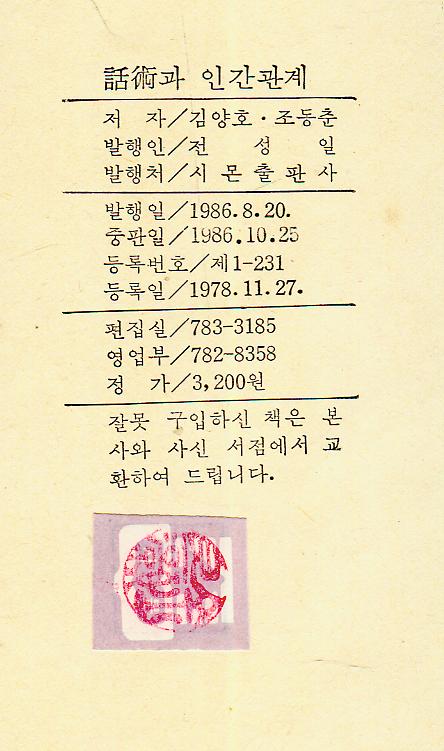 話術과 인간관계
저 자/김양호·조동춘
발행인/전 성 일
발행처/시 몬 출 판 사
발행일/1986.8.20.
중판일/1986.10.25
등록번호/제1-231
등록일/1978.11.27.
편집실/783-3185
영업부/782-8358
정 가/3,200원
잘못 구입하신 책은 본
사와 사신 서점에서 교
환하여 드립니다.